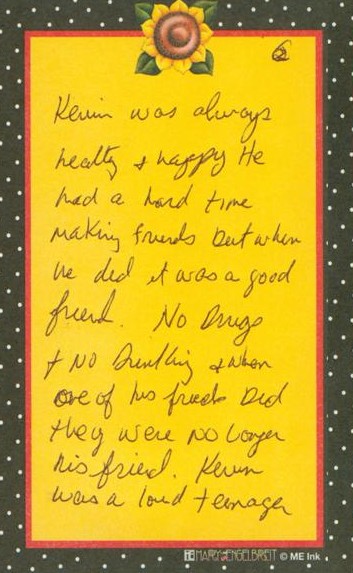 6
Kevin was always
healty & happy He
had a hard time
making friends but when
he did it was a good
friend. No Drugs
+ No Drinking & when
one of his friends Did
they were no longer
his friend. Kevin
was a loud teenager
ME MARY ENGELBREIT © ME Ink